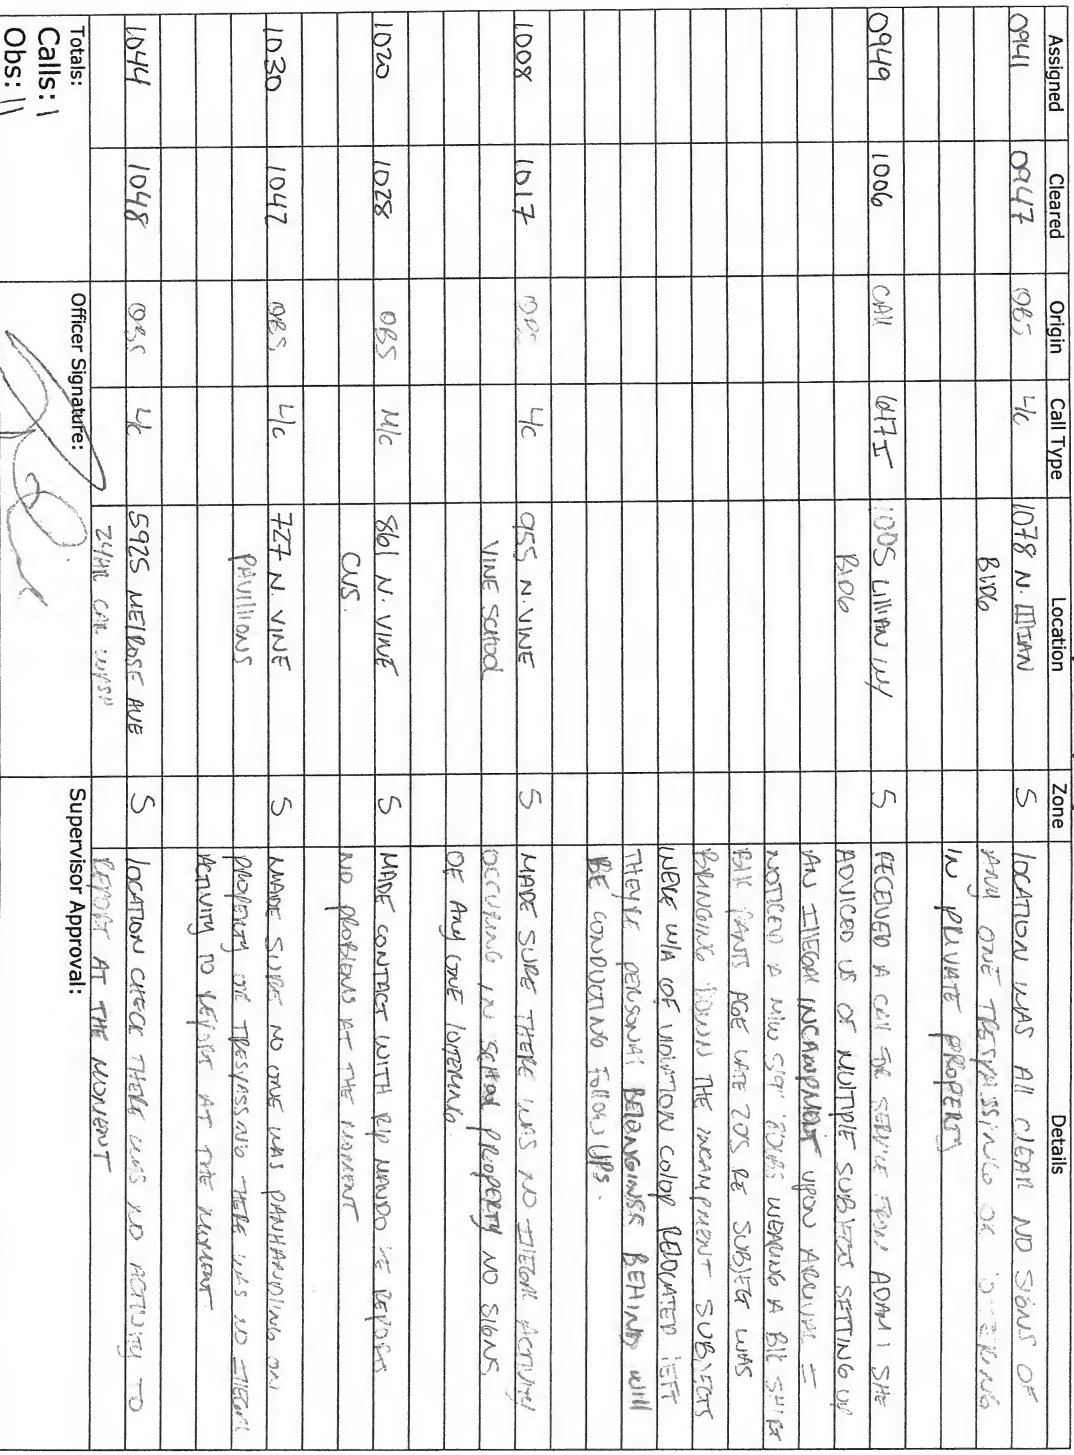 Assigned Cleared Origin Call Type Location Zone Details
0941 0947 OBS L/C 1078 N. LILLIAN S LOCATION WAS All CLEAR NO SIGNS OF
BlDG ANY ONE TRESPASSING OR
IN PRIVATE PROPERTY
0949 1006 CAll 647I 1005 LILLIAN WY S RECEIVED A CALL FOR SERVICE FROM ADAM 1 SHE
BlDG ADVICED US OF MULTIPLE SUBJECTS SETTING UP
AN IllEGAL INCAMPMENT UPON ARRIVAL I
NOTICED A M/W 5'9" WEARING A BlK SHIRT
BlK PANTS AGE LATE 20S RE SUBJECT WAS
BRINGING DOWN THE INCAMPMENT SUBJECTS
WERE W/A OF VIOLATION COlOP RELOCATED lEFT
THEYRE PERSONAl BElONGINGS BEHIND WIll
BE CONDUCTING FOllOW UPS.
1008 1017 OBS L/C 955 N. VINE S MADE SURE THERE WAS NO IllEGAL ACTIVITY
VINE SCHOOL OCCURING IN SCHOOL PROPERTY NO SIGNS
OF ANY ONE LOITERING.
1020 1028 OBS M/C 861 N. VINE S MADE CONTACT WITH R/P NANDO HE REPORTS
CVS. NO PROBLEMS AT THE MOMENT
1030 1042 OBS L/C 727 N. VINE S MADE SURE NO ONE WAS PANHANDLING ON
PAVILLIONS PROPERTY OR TRESPASSING THERE WAS NO IllEGAL
ACTIVITY TO REPORT AT THE MOMENT.
1044 1048 OBS L/C 5925 MElROSE AVE S LOCATION CHECK THERE WAS NO ACTIVITY TO
24HR CAR WASH REPORT AT THE MOMENT
Totals: Officer Signature: Supervisor Approval:
Calls: 1
Obs: 11